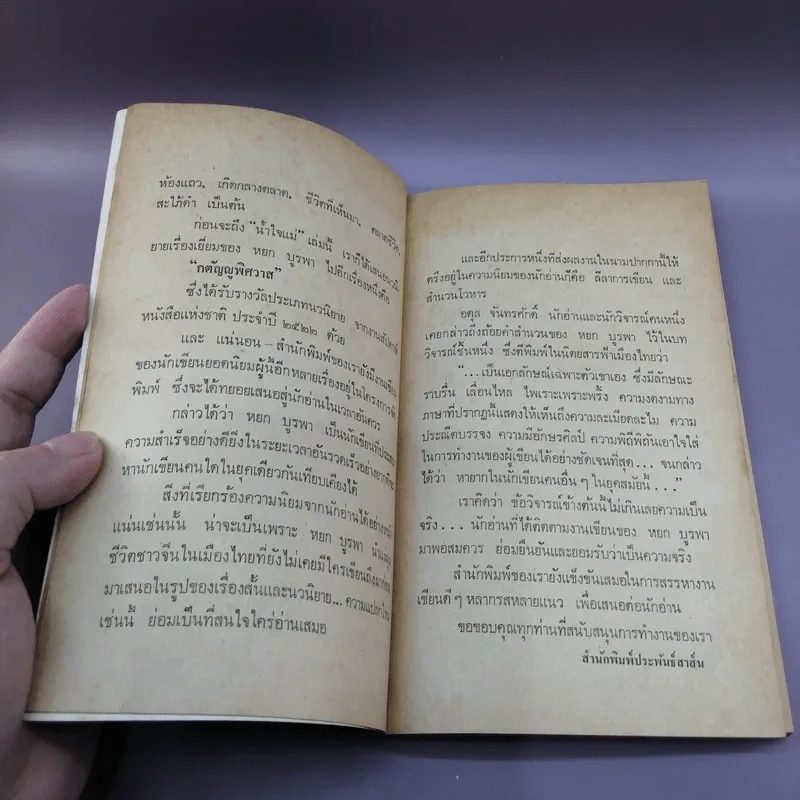 ห้องแถว, เกิดกลางตลาด, ชีวิตที่เห็นมา, ตลาดชีวิต,
สะใภ้ดำ เป็นต้น
ก่อนจะถึง “น้ำใจแม่” เล่มนี้ เราก็ได้เสนอนวนิ-
ยายเรื่องเยี่ยมของ หยก บูรพา ไปอีกเรื่องหนึ่งคือ
“กตัญญูพิศวาส”
ซึ่งได้รับรางวัลประเภทนวนิยาย จากงานสัปดาห์
หนังสือแห่งชาติ ประจำปี ๒๕๒๒ ด้วย
และ แน่นอน – สำนักพิมพ์ของเรายังมีงานเขียน
ของนักเขียนยอดนิยมผู้นี้อีกหลายเรื่องอยู่ในโครงการจัด
พิมพ์ ซึ่งจะได้ทยอยเสนอสู่นักอ่านในเวลาอันควร
กล่าวได้ว่า หยก บูรพา เป็นนักเขียนที่ประสบ
ความสำเร็จอย่างดียิ่งในระยะเวลาอันรวดเร็วอย่างยากที่จะ
หานักเขียนคนใดในยุคเดียวกันเทียบเคียงได้
สิ่งที่เรียกร้องความนิยมจากนักอ่านได้อย่าง
แน่นเช่นนั้น น่าจะเป็นเพราะ หยก บูรพา นำ
ชีวิตชาวจีนในเมืองไทยที่ยังไม่เคยมีใครเขียนถึง
มาเสนอในรูปของเรื่องสั้นและนวนิยาย... ความแปลกใหม่
เช่นนี้ ย่อมเป็นที่สนใจใคร่อ่านเสมอ
และอีกประการหนึ่งที่ส่งผลงานในนามปากกานี้ให้
ตรึงอยู่ในความนิยมของนักอ่านก็คือ ลีลาการเขียน และ
สำนวนโวหาร
อดุล จันทรศักดิ์ นักอ่านและนักวิจารณ์คนหนึ่ง
เคยกล่าวถึงถ้อยคำสำนวนของ หยก บูรพา ไว้ในบท
วิจารณ์ชิ้นหนึ่ง ซึ่งตีพิมพ์ในนิตยสารฟ้าเมืองไทยว่า
“...เป็นเอกลักษณ์เฉพาะตัวเขาเอง ซึ่งมีลักษณะ
ราบรื่น เลื่อนไหล ไพเราะเพราะพริ้ง ความงดงามทาง
ภาษาที่ปรากฏนี้แสดงให้เห็นถึงความละเมียดละไม ความ
ประณีตบรรจง ความมีอักษรศิลป์ ความพิถีพิถันเอาใจใส่
ในการทำงานของผู้เขียนได้อย่างชัดเจนที่สุด... จนกล่าว
ได้ว่า หายากในนักเขียนคนอื่นๆ ในยุคสมัยนี้...”
เราคิดว่า ข้อวิจารณ์ข้างต้นนี้ไม่เกินเลยความเป็น
จริง... นักอ่านที่ได้ติดตามงานเขียนของ หยก บูรพา
มาพอสมควร ย่อมยืนยันและยอมรับว่าเป็นความจริง
สำนักพิมพ์ของเรายังแข็งขันเสมอในการสรรหางาน
เขียนดีๆ หลากรสหลายแนว เพื่อเสนอต่อนักอ่าน
ขอขอบคุณทุกท่านที่สนับสนุนการทำงานของเรา
สำนักพิมพ์ประพันธ์สาส์น